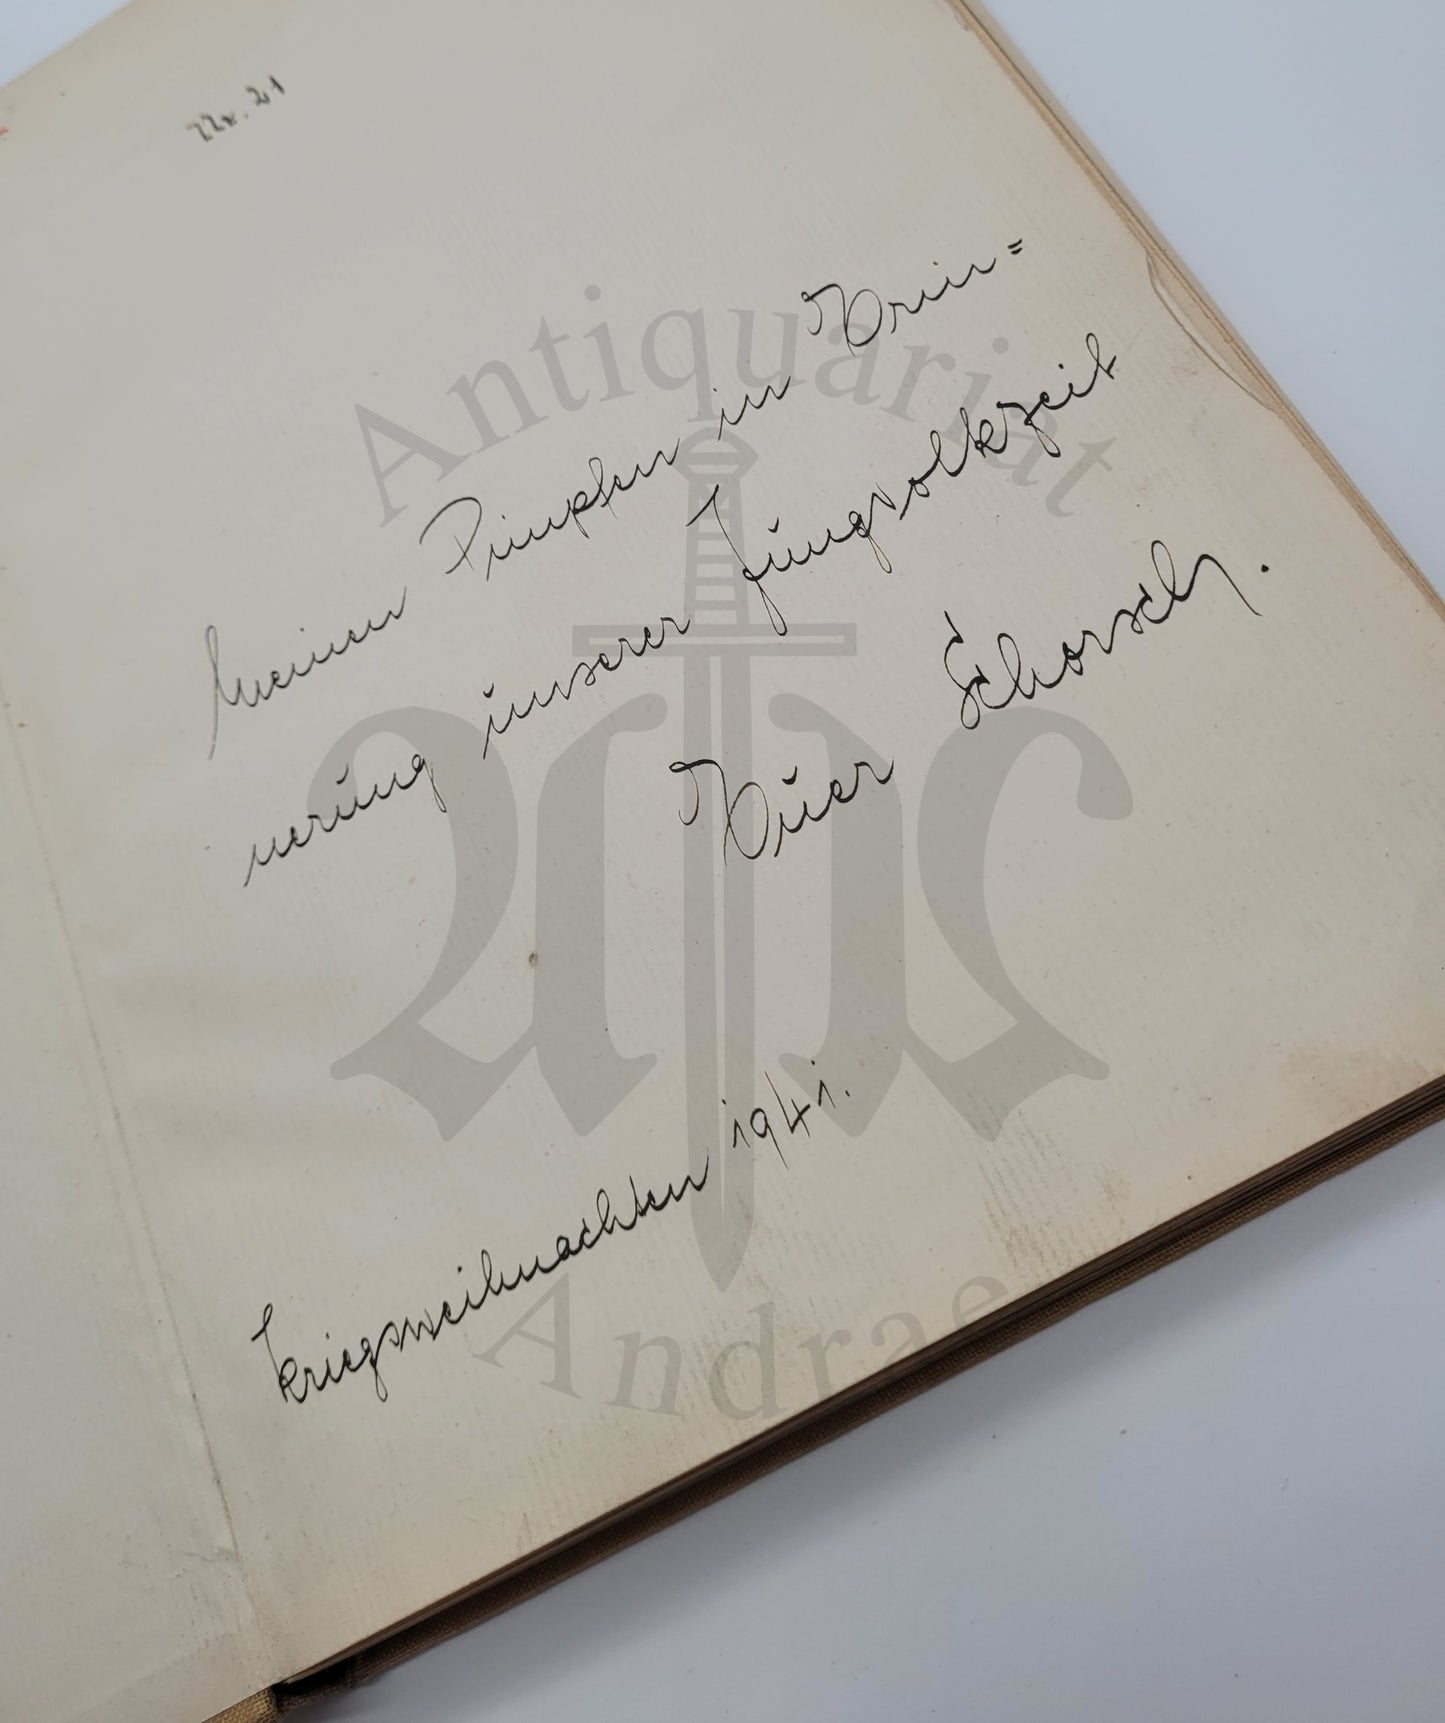 Nr. 21
Meinen Pimpfen in Erin=
nerung unserer Jungvolkzeit
Euer Schorsch.
Kriegsweihnachten 1941.
Antiquariat
Andrae